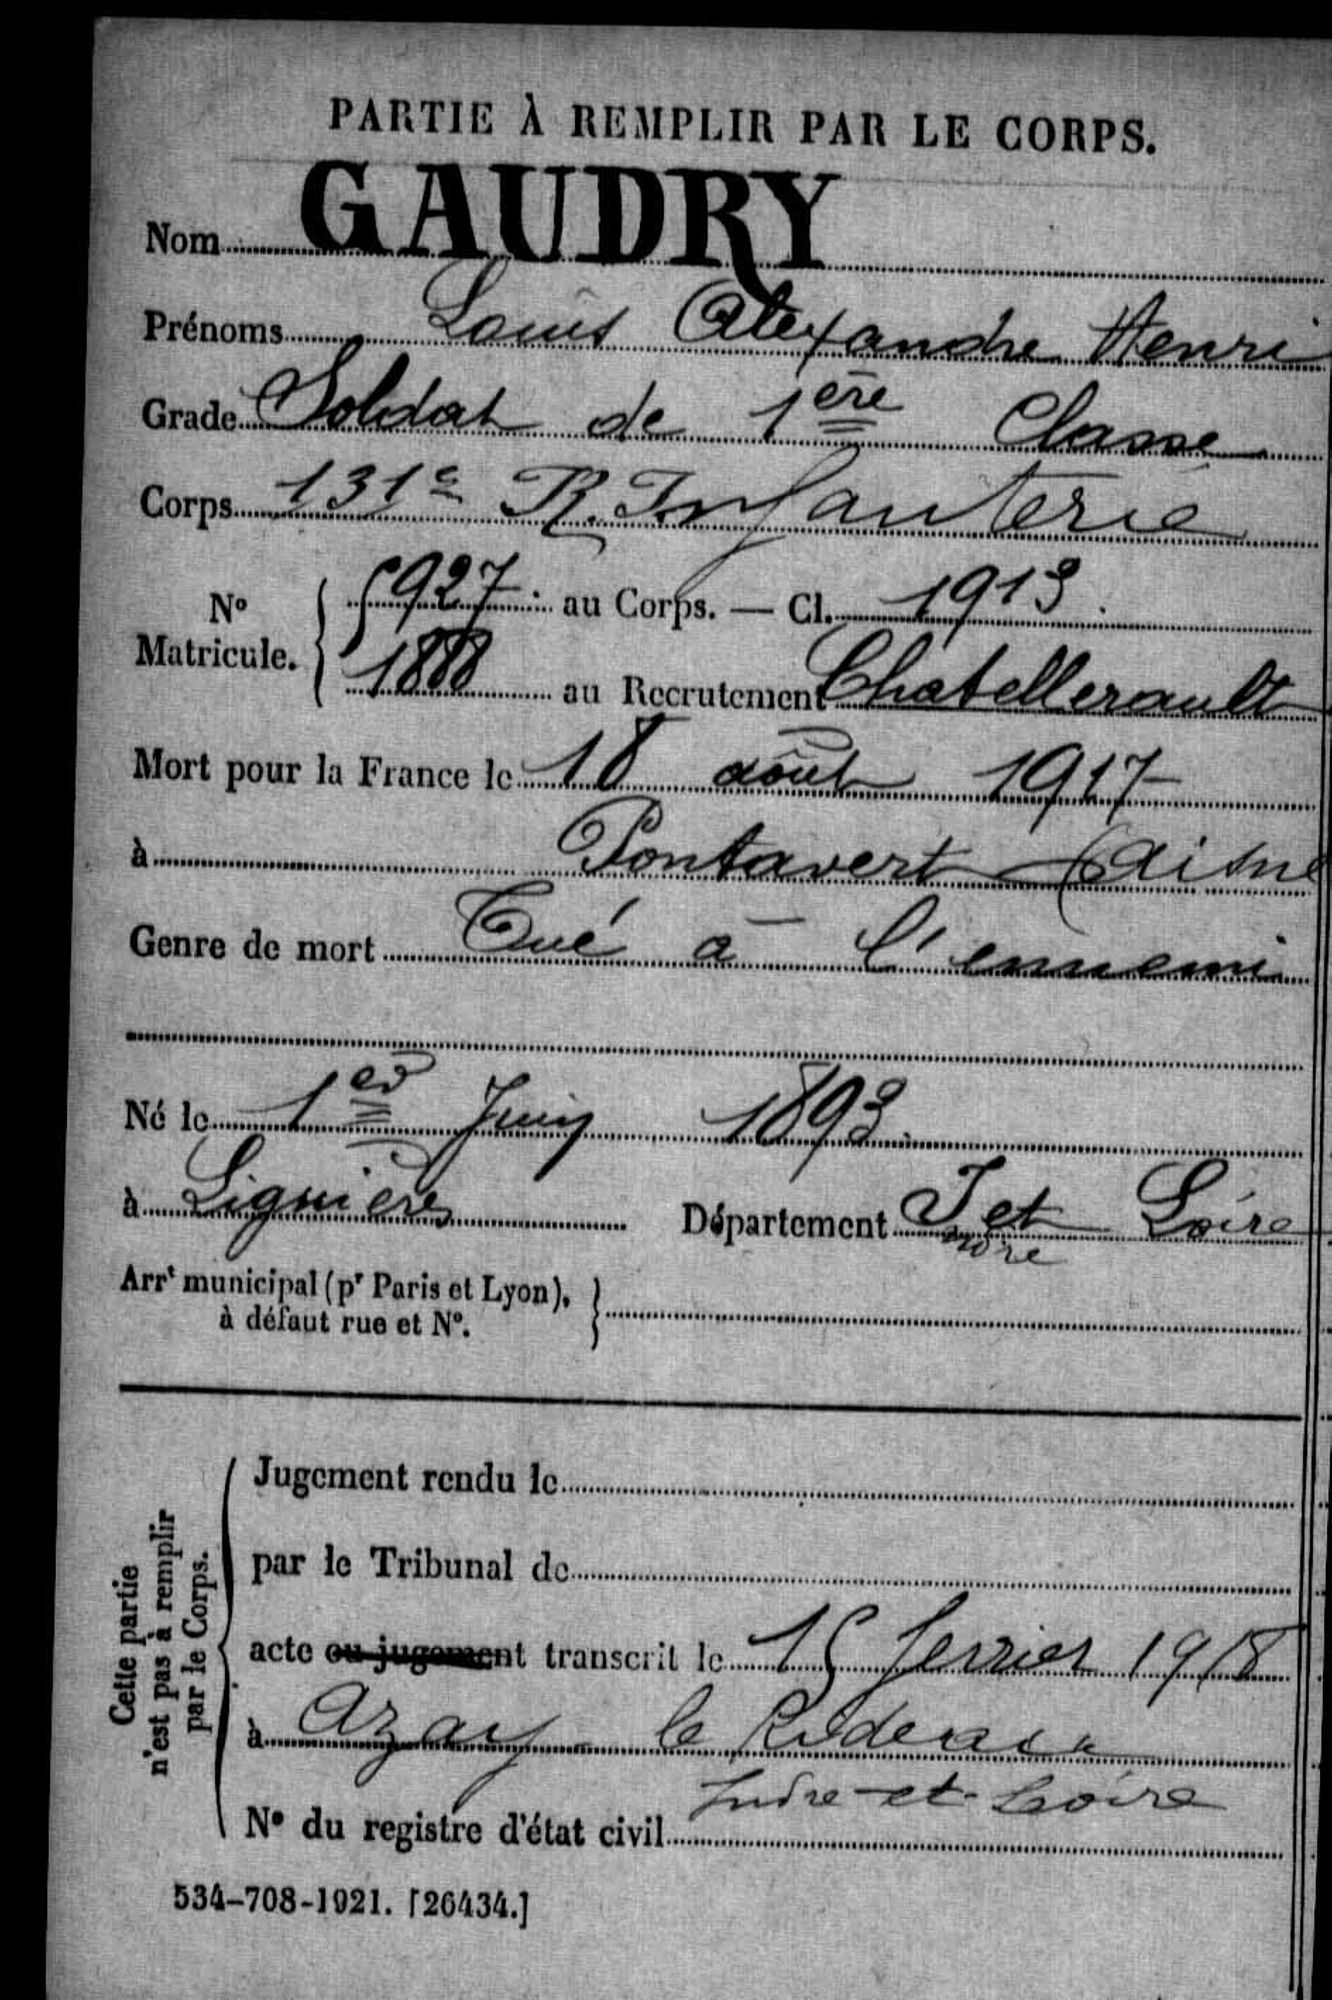 PARTIE À REMPLIR PAR LE CORPS.
Nom GAUDRY
Prénoms Louis Alexandre Henri
Grade Soldat de 1ère Classe
Corps 131e R. Infanterie
No Matricule. { 5927 au Corps. — Cl. 1913.
1888 au Recrutement Chatellerault
Mort pour la France le 18 août 1917
à Pontavert (Aisne
Genre de mort Tué à l'ennemi
Né le 1er Juin 1893.
à Lignières Département I et Loire
ndre
Arrt municipal (pr Paris et Lyon),
à défaut rue et No.
Cette partie
n'est pas à remplir
par le Corps.
Jugement rendu le
par le Tribunal de
acte ou jugement transcrit le 15 fevrier 1918
à Azay le Rideau
Indre-et-Loire
No du registre d'état civil
534-708-1921. [26434.]